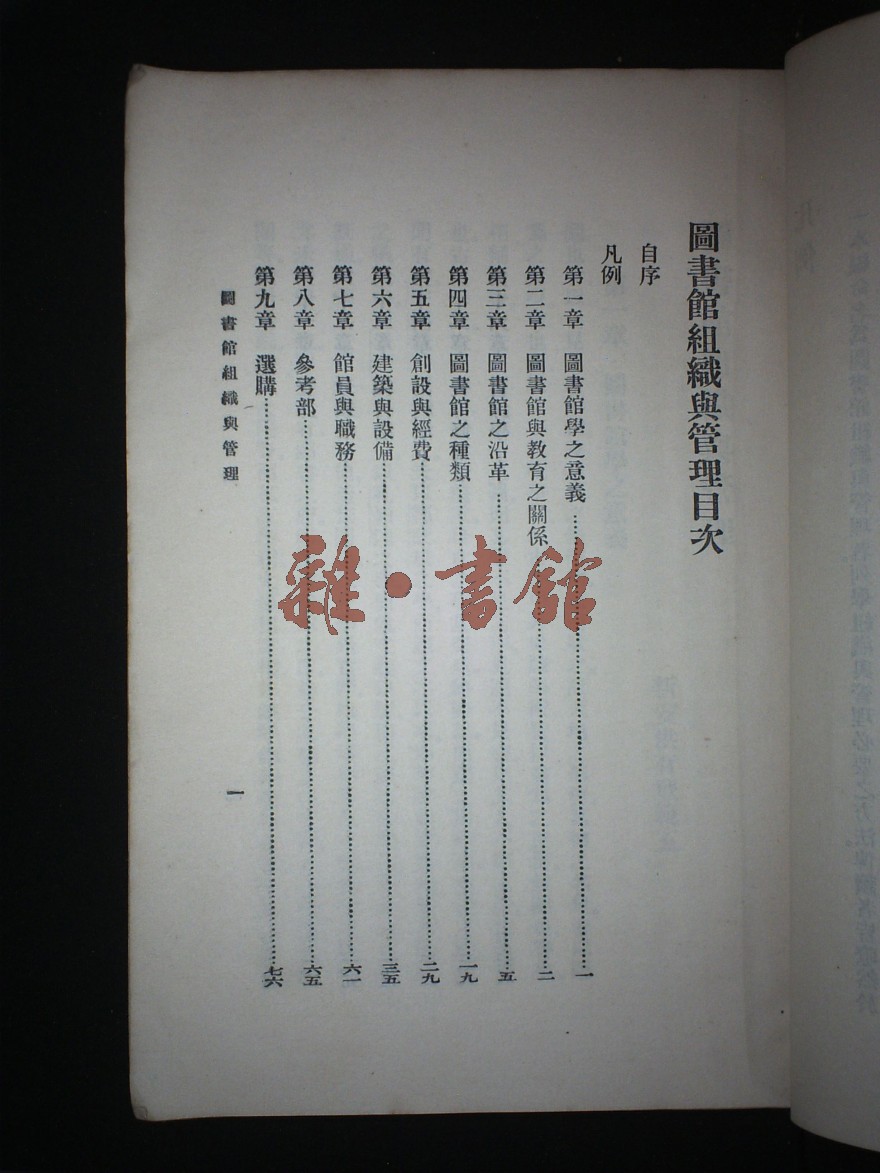 圖書館組織與管理目次
自序
凡例
第一章 圖書館學之意義 一
第二章 圖書館與教育之關係 二
第三章 圖書館之沿革 五
第四章 圖書館之種類 一九
第五章 創設與經費 二九
第六章 建築與設備 三五
第七章 館員與職務 六一
第八章 參考部 六五
第九章 選購 七六
圖書館組織與管理 一
雜·書館